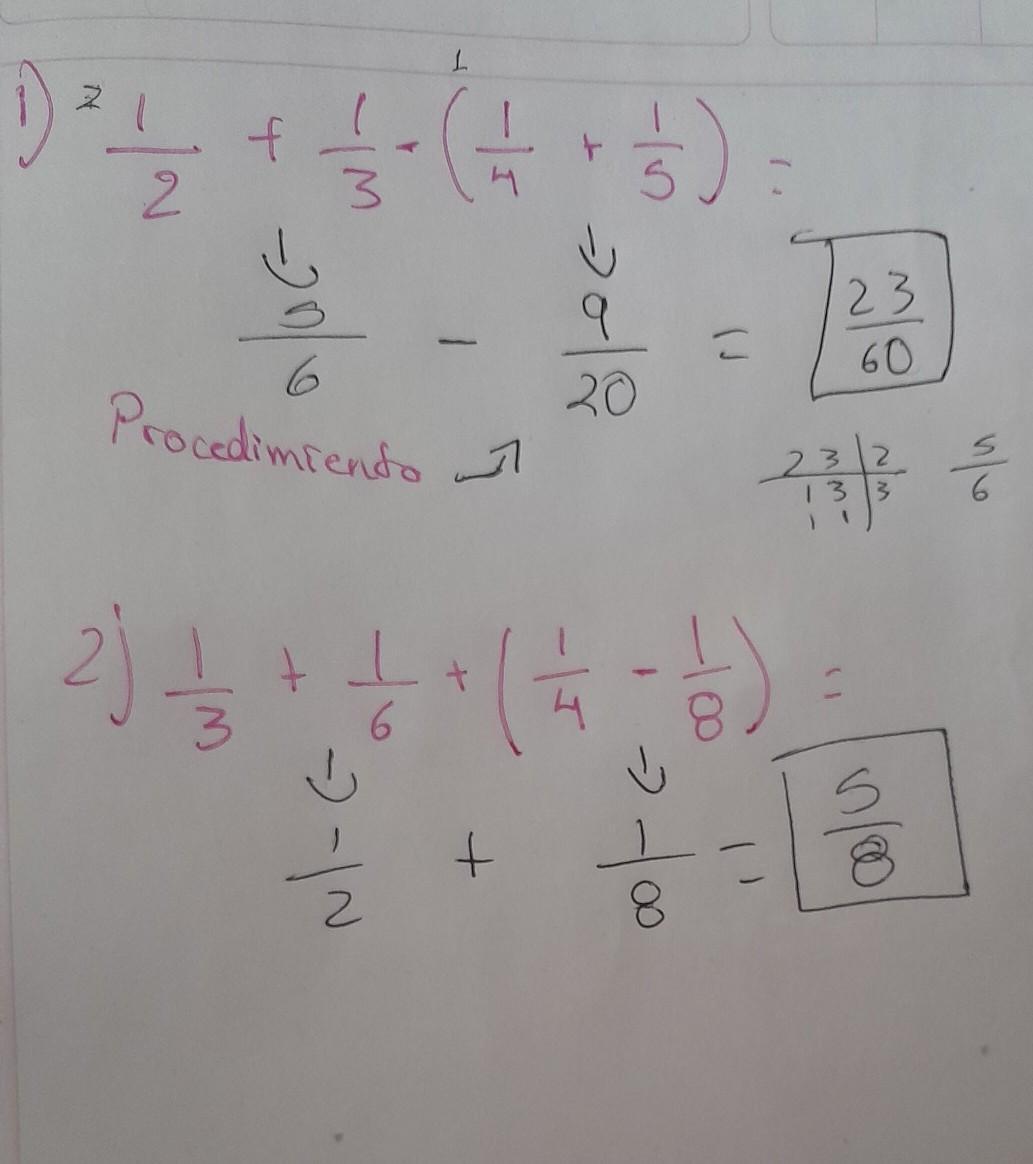 1
1) 2 1/2 + 1/3 - (1/4 + 1/5) =
5/6 - 9/20 = 23/60
Procedimiento
23 2 5/6
13 3
11
2) 1/3 + 1/6 + (1/4 - 1/8) =
1/2 + 1/8 = 5/8